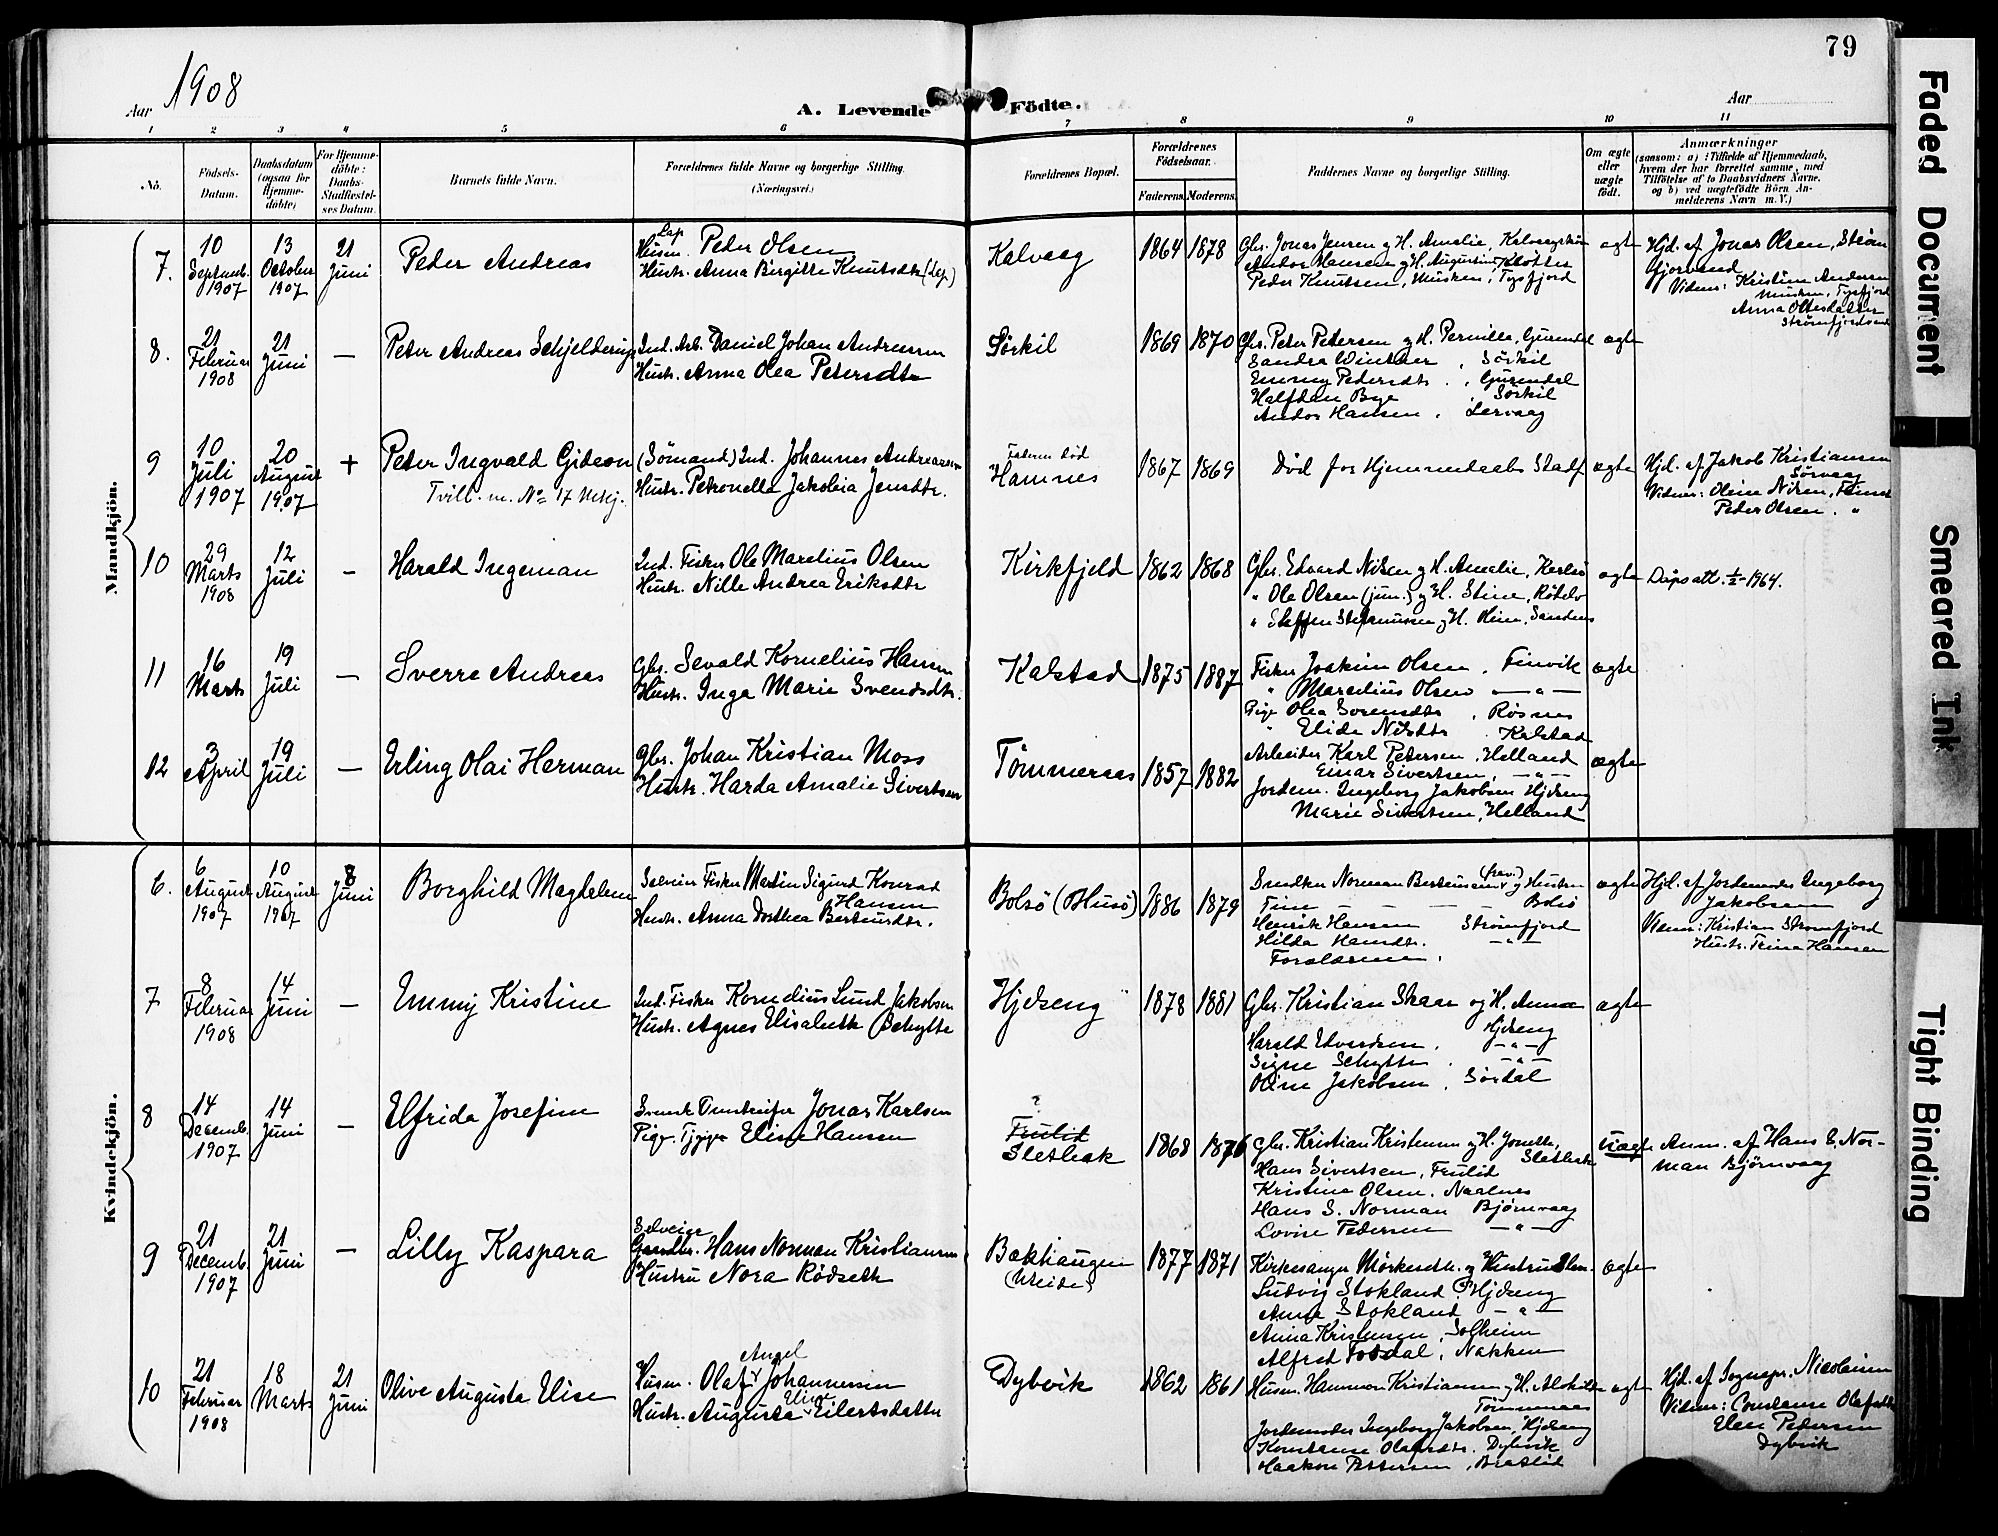 79
Aar 1908
A. Levende Födte.
Aar
1 2 3 4 5 6 7 8 9 10 11
No.
Födsels-Datum.
Daabsdatum (ogsaa for Hjemme-döbte)
For Hjemme-döbte: Daabs-Stadfæstel-ses Datum.
Barnets fulde Navn.
Forældrenes fulde Navne og borgerlige Stilling.
(Næringsvei.)
Forældrenes Bopæl.
Forældrenes Födselsaar.
Faderens. Moderens.
Faddernes Navne og borgerlige Stilling.
Om ægte eller uægte födt.
Anmærkninger
(saasom: a) i Tilfælde af Hjemmedaab,
hvem der har forrettet samme, med
Tilföielse af to Daabsvidners Navne,
og b) ved uægtefödte Börn An-
melderens Navn m. V.)
Mandkjön.
7. 10 Septemb. 1907 13 October 1907 21 Juni
Peder Andreas
Husm. Lap Peder Olsen
Hustr. Anna Birgitte Knutsdtr (Lap)
Kalvaag 1864 1878
Gbr. Jonas Jensen og H. Amalie,
Andor Hansen og H. Augustine,
Peder Knutsen, Musken, Tysfjord
ægte
Hjd. af Jonas Olsen,
Vidner: Kristine Andersen
Musken, Tysfjord
Anna Oltesdatter
8. 21 Februar 1908 21 Juni —
Peter Andreas Schjelderup
Ind. Arb. Daniel Johan Andreassen
Hustr. Anna Olea Petersdtr
Sørkil 1869 1870
Gbr. Peter Petersen og H. Pernille,
Sandra Winther, Sørkil
Emmy Pedersdtr.
Halfdan Bye, Sørkil
Andor Hansen, Lervaag
ægte
9 10 Juli 1907 20 August 1907 +
Peter Ingvald Gideon
Tvill. m. No 17
(Sömand) Ind. Johannes Andreassen
Hustr. Petronella Jakobia Jensdtr.
Faderen död
Hamnes 1867 1869
Död för Hjemmedaabs Stadf.
ægte
Hjd. af Jakob Kristiansen
Sørvaag
Vidner: Oline Nilsen,
Peder Olsen. "
10 29 Marts 1908 12 Juli —
Harald Ingeman
Ind. Fisker Ole Marelius Olsen
Hustr. Nille Andrea Eriksdtr
Kirkfjeld 1862 1868
Gbr. Edvard Nilsen og H. Amalie,
" Ole Olsen (jun.) og H. Stine,
" Steffen Steffensen og H. Oline,
ægte
Dåpsatt. 1/2-1964.
11 16 Marts 19 Juli —
Sverre Andreas
Gbr. Sevald Kornelius Hansen
Hustr. Inga Marie Svendsdtr.
Kalstad 1875 1887
Fisker Joakim Olsen. Finvik
" Marcelius Olsen — " —
Pige Olea Sorensdtr, Røsnes
" Elida Nilsdtr. Kalstad
ægte
12 3 April 19 Juli —
Erling Olai Herman
Gbr. Johan Kristian Moss
Hustr. Harda Amalie Sivertsen
Tömmeraas 1857 1882
Arbeider Karl Petersen, Helland
Einar Sivertsen, — " —
Jordem. Ingeborg Jakobsen
Marie Sivertsen, Helland
ægte
Kvindekjön.
6. 6 August 1907 10 August 1907 8 Juni
Borghild Magdelene
Selveier Fisker Martin Sigurd Konrad
Hansen
Hustr. Anna Dorthea Berteusdtr.
Bolsö (Husö) 1886 1879
Smedker Norman Berteussen og Hustru
Trine — — — Bolsö
Henrik Hansen Strømfjord
Hilda Hansdtr. — " —
Forældrene.
ægte
Hjd. af Jordemoder Ingeborg
Jakobsen
Vidner: Kristian Strömfjord
Hustr. Trina Hansen
7 8 Februar 1908 14 Juni —
Emmy Kristine
Ind. Fisker Kornelius Lund Jakobsen
Hustr. Agnes Elisabeth Schytte
1878 1881
Gbr. Kristian Skaar og H. Anna
Harald Edvardsen. — " —
Signe Schytte. — " —
Oline Jakobsen, Sördal
ægte
8 14 Decemb. 1907 14 Juni —
Elfrida Josefine
Svensk Jonas Karlsen
Pige Elise Hansen
?
Sletbak 1868 1876
Gbr. Kristian Kristensen og H.
Sletbak
Hans Sivertsen,
Kristine Olsen. Naalnes
Hans S. Norman Bjørnvaag
Lovise Pedersen — " —
uægte
Anm. af Hans S. Nor-
man Bjørnvaag
9 21 Decemb. 1907 21 Juni —
Lilly Kaspara
Selveier
Gaardbr. Hans Norman Kristiansen
Hustru Nora Rödseth
Bakhaugen 1877 1871
Kirkesanger og Hustru
Ludvig Stokland
Anne Stokland — " —
Anna Kristensen, Solheim
Alfred Fosdal, Nakken
ægte
10 21 Februar 1908 18 Marts 21 Juni
Olive Augusta Elise
Husm. Olaf Angel Johannessen
Hustr. Augusta Elise Eilertsdatter
Dybvik 1862 1861
Husm. Hammon Kristiansen og H.
Tömmeraas
Jordemoder Ingeborg Jakobsen,
Konstanse Olafsdtr. Dybvik
Haakon Pettersen,
ægte
Hjd. af Sognepr. Nicolaisen
Vidner: Constanse Olafsdtr
Elen Pedersen
Dybvik
Faded Document
Smeared Ink
Tight Binding